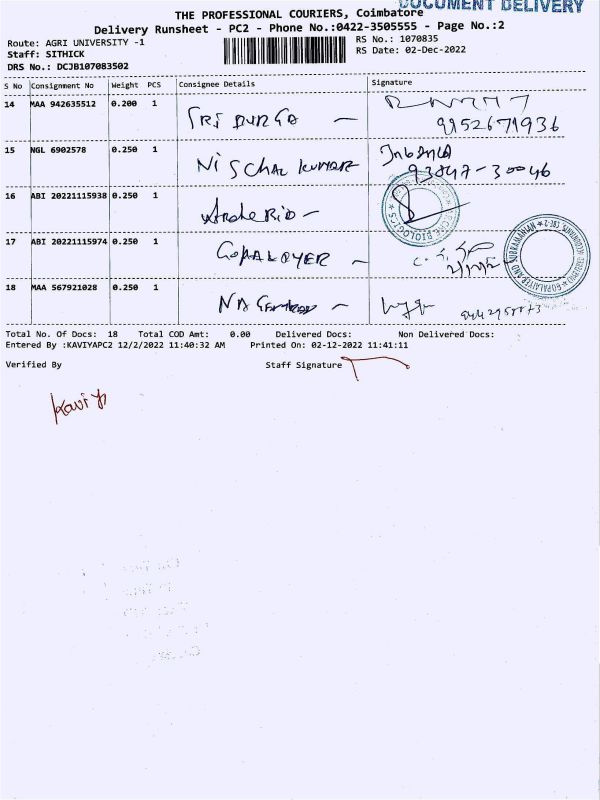 DOCUMENT DELIVERY
THE PROFESSIONAL COURIERS, Coimbatore
Delivery Runsheet - PC2 - Phone No.:0422-3505555 - Page No.:2
Route: AGRI UNIVERSITY -1 RS No.: 1070835
Staff: SITHICK RS Date: 02-Dec-2022
DRS No.: DCJB107083502
S No Consignment No Weight PCS Consignee Details Signature
14 MAA 942635512 0.200 1 SRI DURGA —
9952671936
15 NGL 6902578 0.250 1 NISCHAL KUMAR
93847-30046
16 ABI 20221115938 0.250 1
17 ABI 20221115974 0.250 1 GOPALOYER —
18 MAA 567921028 0.250 1
Total No. Of Docs: 18 Total COD Amt: 0.00 Delivered Docs: Non Delivered Docs:
Entered By :KAVIYAPC2 12/2/2022 11:40:32 AM Printed On: 02-12-2022 11:41:11
Verified By Staff Signature
Kaviya